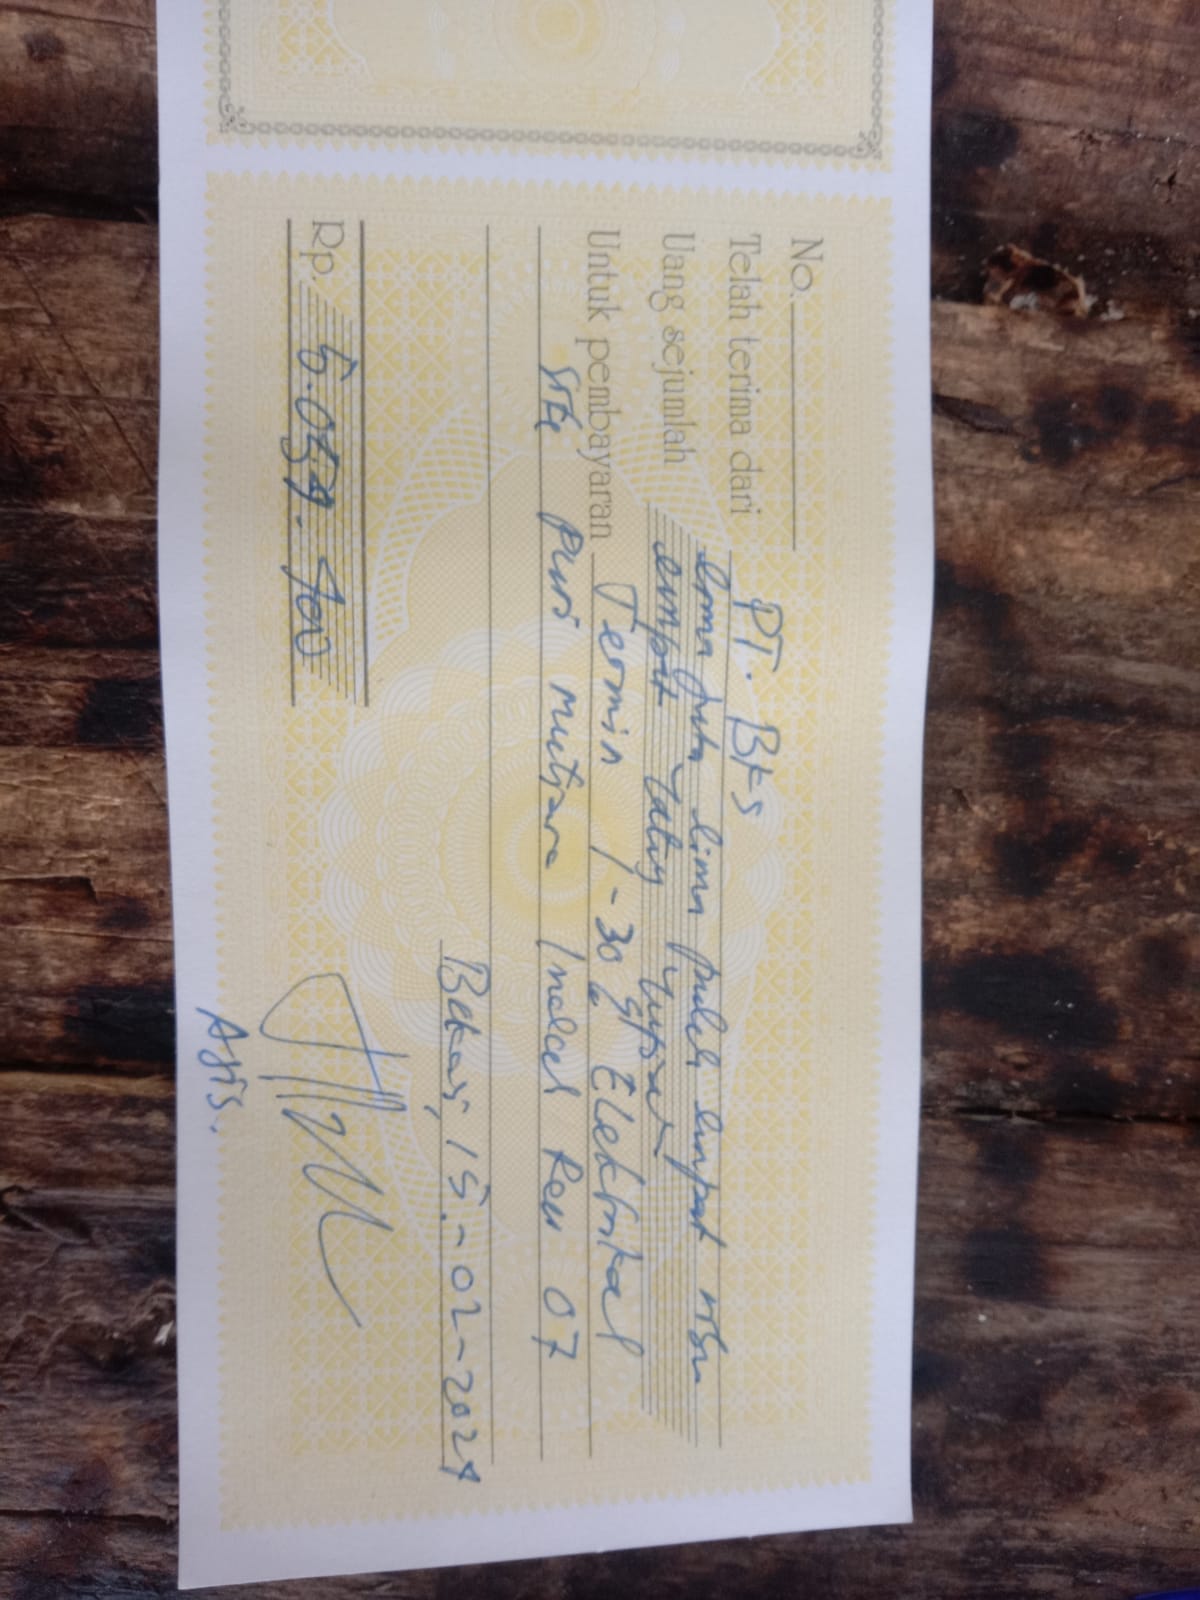 No.
Telah terima dari PT. BKS
Uang sejumlah lima juta lima puluh empat ribu
empat ratus rupiah
Untuk pembayaran Termin 1 - 30% Elektrikal
site puri mutiara Indah Kav 07
Bekasi, 15 - 02 - 2024
Rp. 5.054.400
Agis.